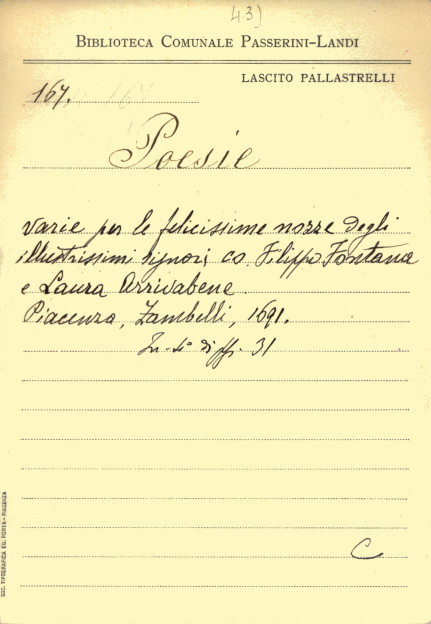 43)
BIBLIOTECA COMUNALE PASSERINI-LANDI
LASCITO PALLASTRELLI
167.
Poesie
varie per le felicissime nozze degli
illustrissimi signori co. Filippo Fontana
e Laura Arrivabene.
Piacenza, Zambelli, 1691.
In-4° di ff. 31
C
SOC. TIPOGRAFICA ED. PORTA - PIACENZA